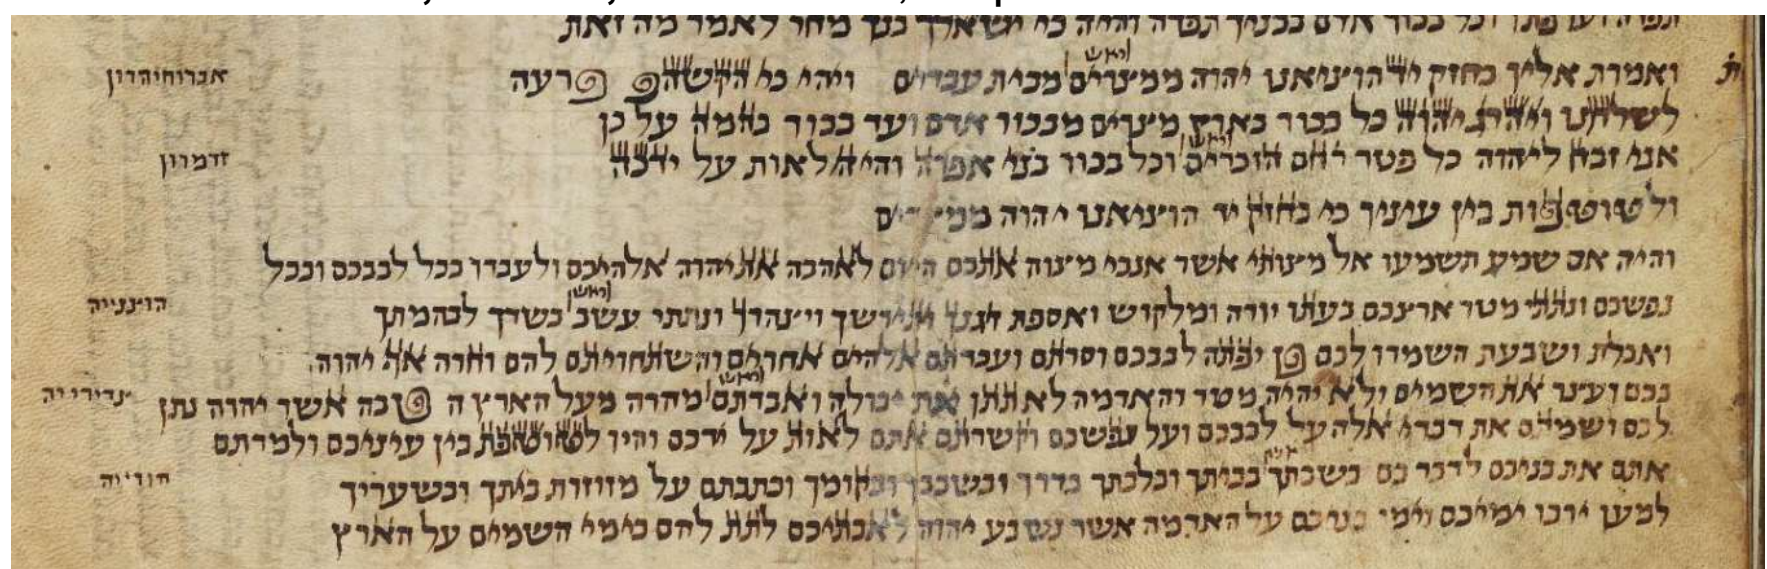 תפדה וערפתו וכל בכור אדם בבניך תפדה והיה כי ישאלך בנך מחר לאמר מה זאת
ראש
ואמרת אליו בחזק יד הוציאנו יהוה ממצרים מבית עבדים ויהי כי הקשה פרעה
לשלחנו ויהרג יהוה כל בכור בארץ מצרים מבכור אדם ועד בכור בהמה על כן
ראש
אני זבח ליהוה כל פטר רחם הזכרים וכל בכור בני אפדה והיה לאות על ידכה
זדמרון
ולטוטפות בין עיניך כי בחזק יד הוציאנו יהוה ממצרים
והיה אם שמע תשמעו אל מצותי אשר אנכי מצוה אתכם היום לאהבה את יהוה אלהיכם ולעבדו בכל לבבכם ובכל
ראש
נפשכם ונתתי מטר ארצכם בעתו יורה ומלקוש ואספת דגנך ותירשך ויצהרך ונתתי עשב בשדך לבהמתך
ואכלת ושבעת השמרו לכם פן יפתה לבבכם וסרתם ועבדתם אלהים אחרים והשתחויתם להם וחרה אף יהוה
ראש
בכם ועצר את השמים ולא יהיה מטר והאדמה לא תתן את יבולה ואבדתם מהרה מעל הארץ הטבה אשר יהוה נתן
לכם ושמתם את דברי אלה על לבבכם ועל נפשכם וקשרתם אתם לאות על ידכם והיו לטוטפת בין עיניכם ולמדתם
אתם את בניכם לדבר בם בשבתך בביתך ובלכתך בדרך ובשכבך ובקומך וכתבתם על מזוזות ביתך ובשעריך
הודייה
למען ירבו ימיכם וימי בניכם על האדמה אשר נשבע יהוה לאבתיכם לתת להם כימי השמים על הארץ